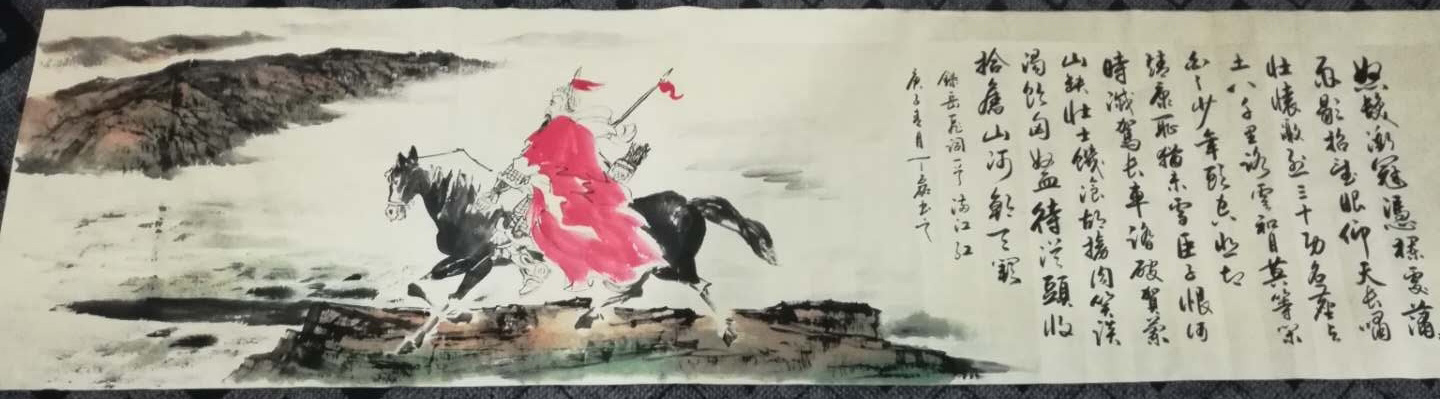 怒髮衝冠憑欄處瀟
雨歇抬望眼仰天長嘯
壯懷激烈三十功名塵与
土八千里路雲和月莫等閑
白了少年頭空悲切
靖康恥猶未雪臣子恨何
時滅駕長車踏破賀蘭
山缺壯士饑湌胡擄肉笑談
渴飲匈奴血待從頭收
拾舊山河朝天闕
錄岳飛詞一首滿江紅
庚子春月丁書之